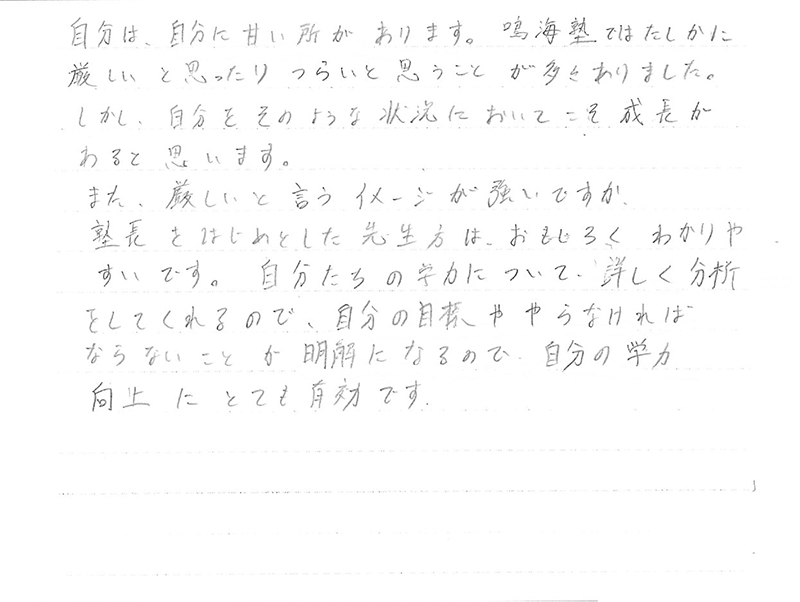 自分は、自分に甘い所があります。鳴海塾ではたしかに
厳しいと思ったりつらいと思うことが多々ありました。
しかし、自分をそのような状況においてこそ成長が
あると思います。
また、厳しいと言うイメージが強いですが、
塾長をはじめとした先生方は、おもしろくわかりや
すいです。自分たちの学力について、詳しく分析
をしてくれるので、自分の目標ややらなければ
ならないことが明解になるので、自分の学力
向上にとても有効です。